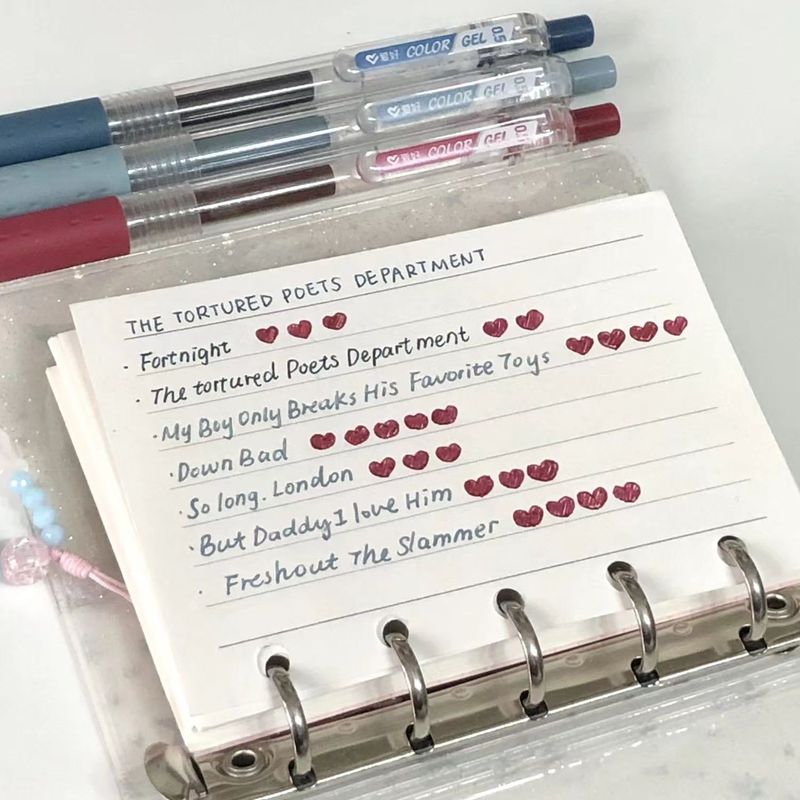 爱好 COLOR GEL 0.5
爱好 COLOR GEL 0.5
爱好 COLOR GEL
THE TORTURED POETS DEPARTMENT
· Fortnight
· The tortured Poets Department
· My Boy Only Breaks His Favorite Toys
· Down Bad
· So long. London
· But Daddy I love Him
· Freshout The Slammer